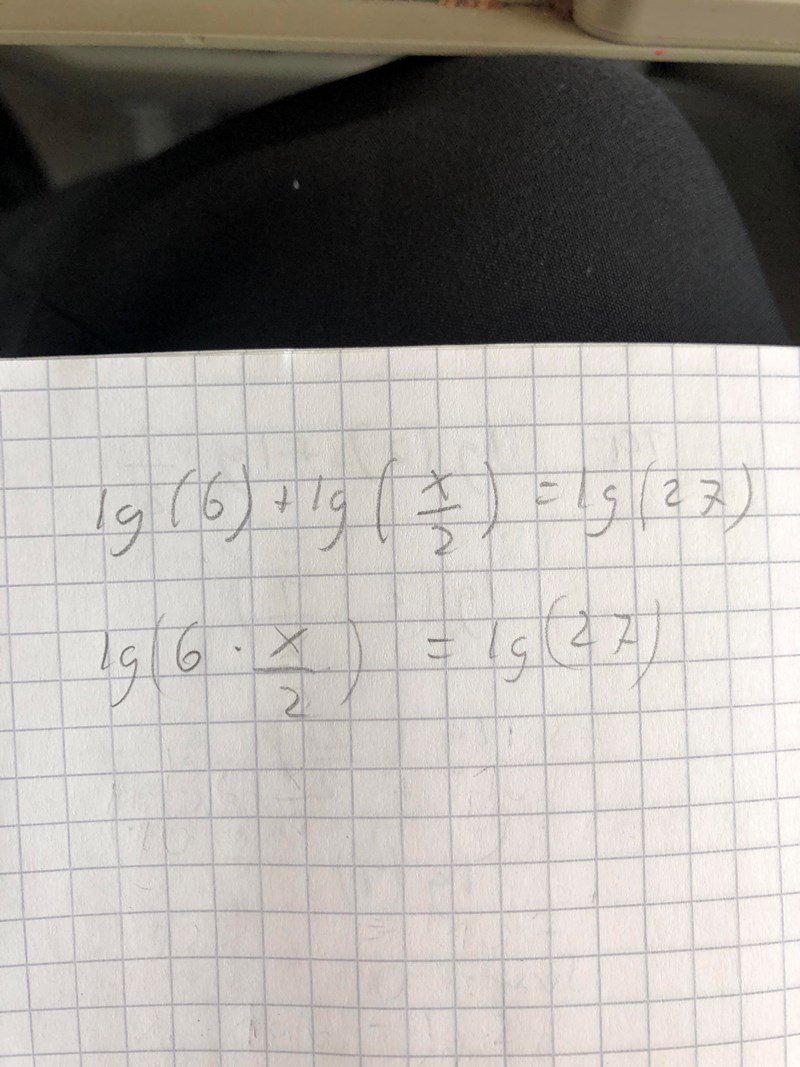 lg(6) + lg(x/2) = lg(27)
lg(6 · x/2) = lg(27)